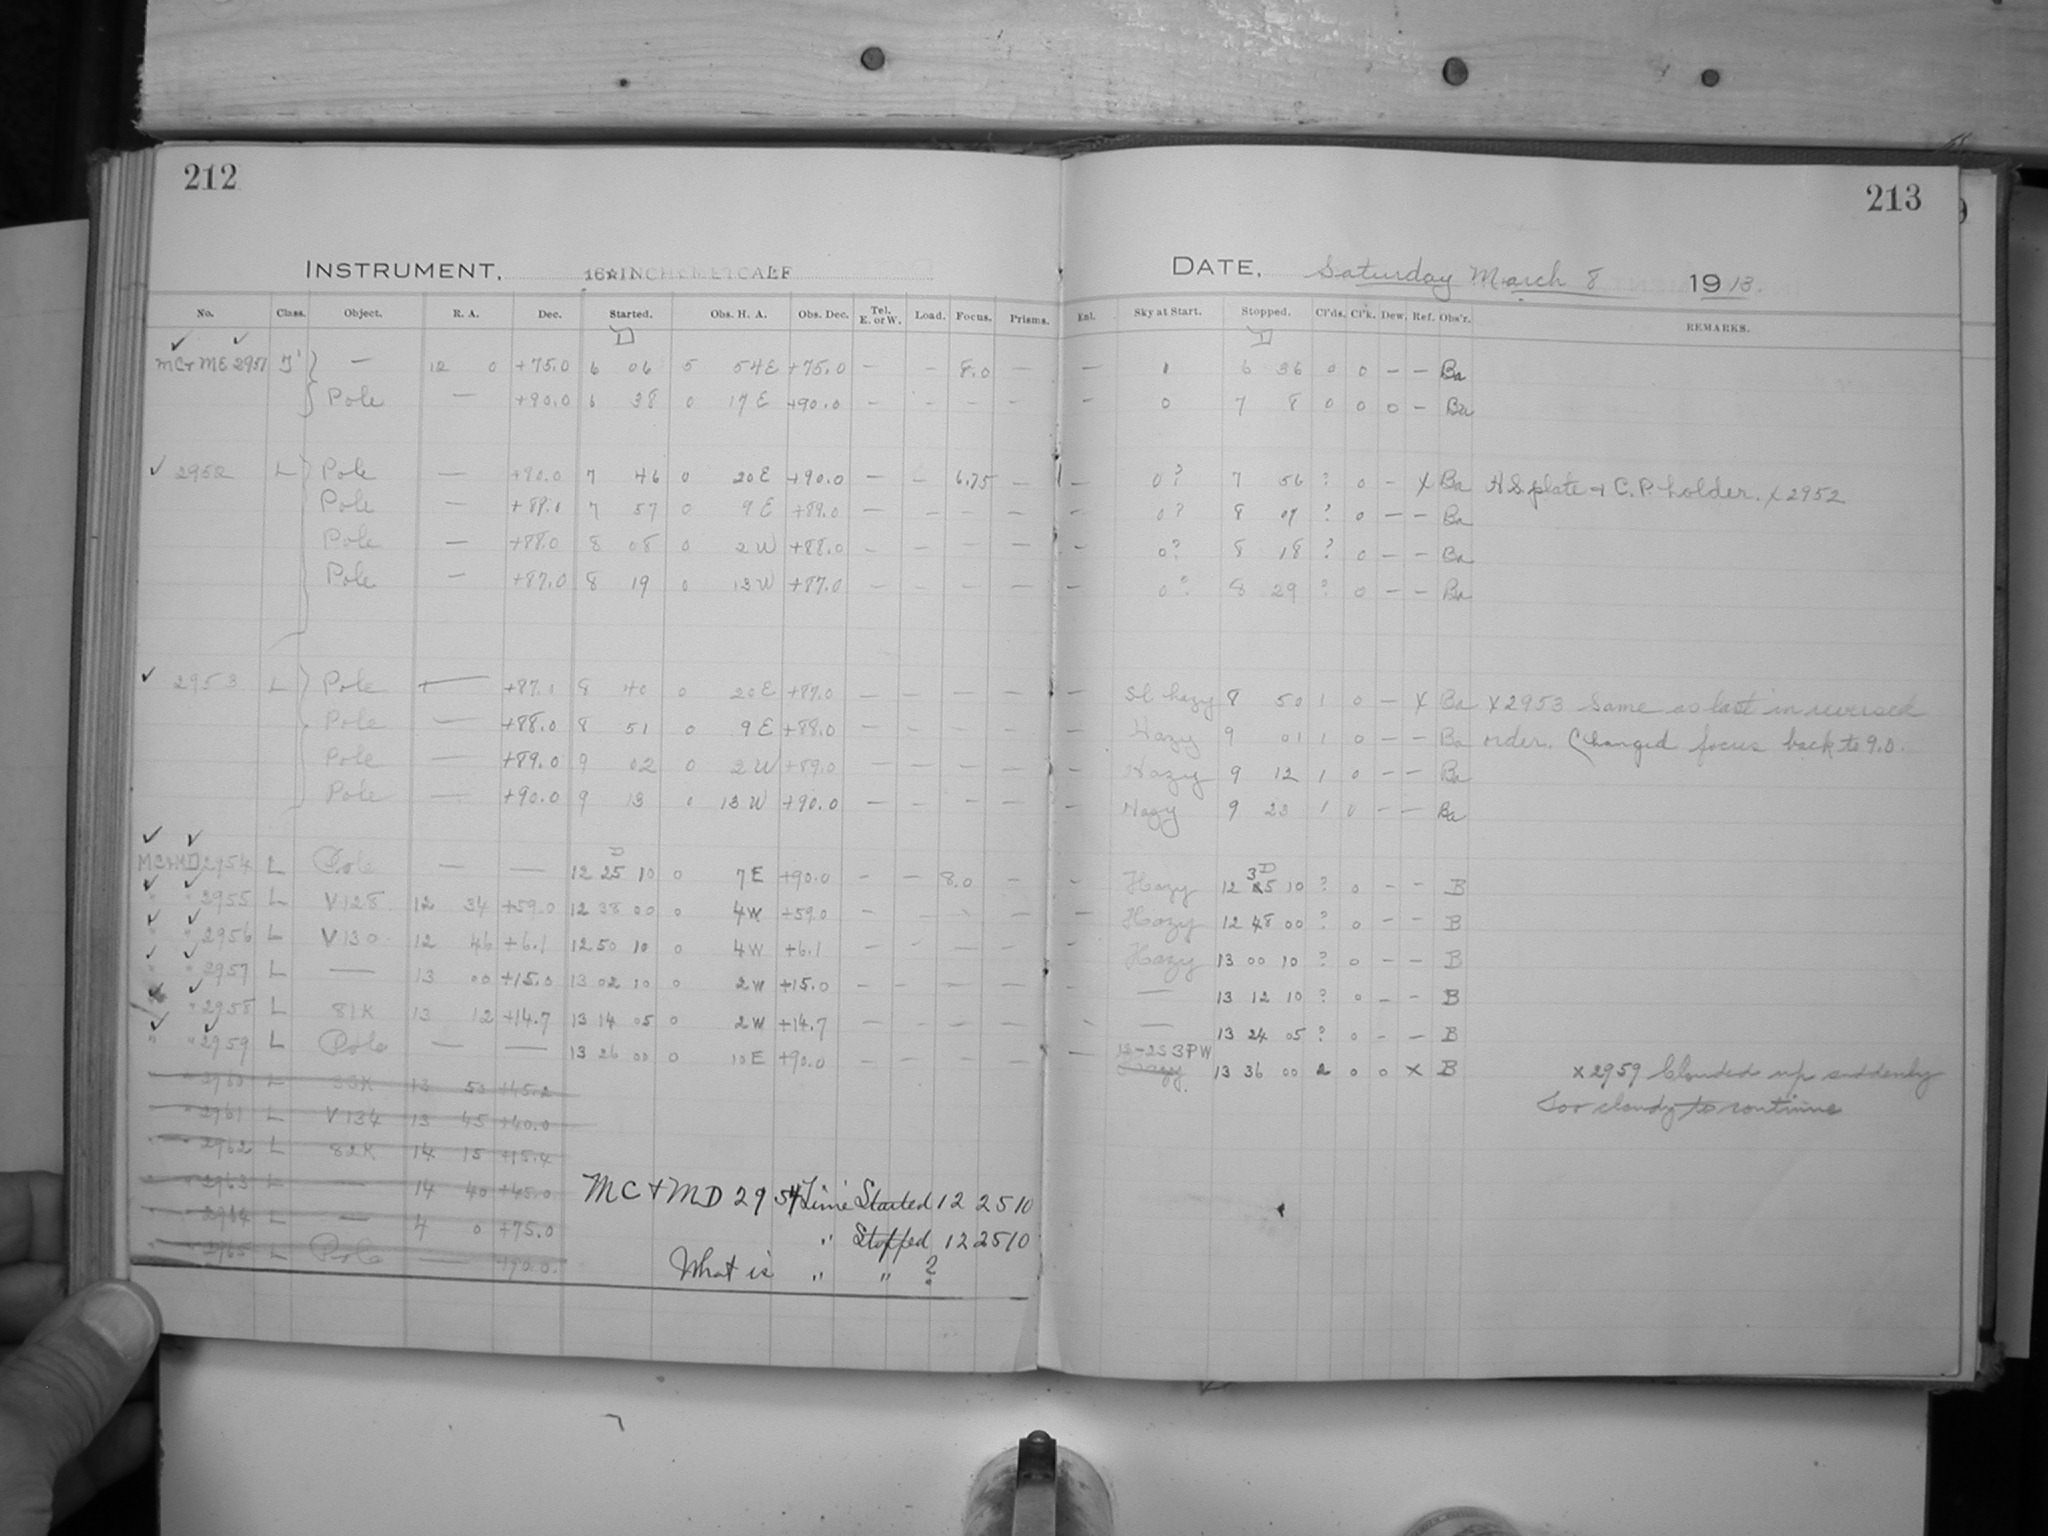 212
213
INSTRUMENT, 16 INCH METCALF
DATE, Saturday March 8 1913.
No. Class. Object. R. A. Dec. Started. Obs. H. A. Obs. Dec. Tel. E. or W. Load. Focus. Prisms. Enl. Sky at Start. Stopped. Cl'ds. Cl'k. Dew. Ref. Obs'r. REMARKS.
D D
MC+ME 2951 — 12 0 +75.0 6 06 5 54E +75.0 — - 8.0 — — 6 36 0 0 — — Ba
Pole — +90.0 6 38 0 17 E +90.0 — - — — - 0 7 8 0 0 0 — Ba
2952 L Pole — +90.0 7 46 0 20E +90.0 — - 6.75 — 0? 7 56 ? 0 - X Ba H S. plate + C. P. holder. X 2952
Pole — 7 57 0 9 E +89.0 — - — — — 0? 8 07 ? 0 — — Ba
Pole — +88.0 8 08 0 2 W +88.0 — - — — — 0? 8 18 ? 0 — — Ba
Pole — +87.0 8 19 0 13 W +87.0 — - — — — 0? 8 29 ? 0 — — Ba
2953 L Pole — 8 40 0 20 E +87.0 — — — — — Sl hazy 8 50 1 0 — X Ba X 2953 Same as last in reversed
Pole — +88.0 8 51 0 9 E +88.0 — — — — — Hazy 9 01 1 0 — — Ba order. Changed focus back to 9.0.
Pole — +89.0 9 02 0 2 W +89.0 — — — — — Hazy 9 12 1 0 — — Ba
Pole — +90.0 9 13 0 13 W +90.0 — — — — — Hazy 9 23 1 0 — — Ba
D 3 D
MC+MD 2954 L Pole — — 12 25 10 0 7 E +90.0 — - 8.0 — — Hazy 12 25 10 ? 0 - - B
" " 2955 L V128 12 34 +59.0 12 38 00 0 4W +59.0 — — Hazy 12 48 00 ? 0 - - B
" " 2956 L V130 12 46 +6.1 12 50 10 0 4W +6.1 — — Hazy 13 00 10 ? 0 - - B
" " 2957 L — 13 00 +15.0 13 02 10 0 2W +15.0 — — — 13 12 10 ? 0 - - B
" " 2958 L 81K 13 12 +14.7 13 14 05 0 2W +14.7 — — — 13 24 05 ? 0 - - B
" " 2959 L Pole — — 13 26 00 0 10E +90.0 — — 13-25 3PW
Hazy. 13 36 00 2 0 0 X B X 2959 Clouded up suddenly
" " 2960 L 83K 13 50 +15.2
Too cloudy to continue
" " 2961 L V134 13 45 +40.0
" " 2962 L 82K 14 15 +15.4
" " 2963 L — 14 40 +45.0
" " 2964 L — 4 0 +75.0
" " 2965 L Pole — +90.0.
MC+MD 2954 Time Started 12 25 10
" Stopped 12 25 10
What is " " ?